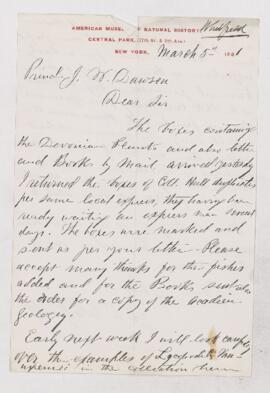 Whitfield
AMERICAN MUSEUM OF NATURAL HISTORY,
CENTRAL PARK, (77th St. & 8th Ave.)
NEW YORK, March 5th 1881
Princl. J. W. Dawson
Dear Sir
The boxes containing
the Devonian Plants and also letter
and Books by Mail arrived yesterday
I returned the boxes of Coll. Hall duplicates
per same local express, they having been
ready waiting an express man several
days. The boxes were marked and
sent as per your letter. Please
accept many thanks for the fishes
added and for the Books sent
the order for a copy of the Acadian
geology.
Early next week I will look carefully
over the examples of
in the collection here